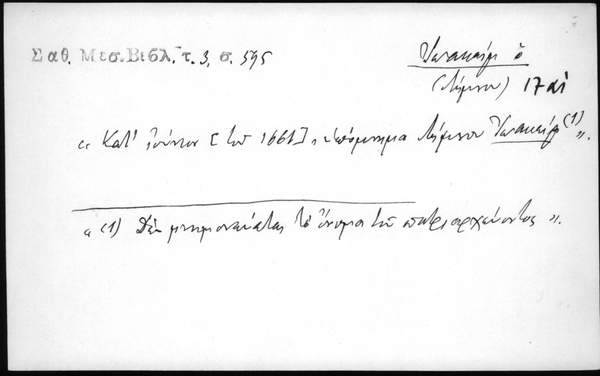 Σαθ. Μεσ. Βιβλ. τ. 3, σ. 595
Ἰωακείμ ὁ
(Λήμνου) 17 αἰ
« Κατ' Ἰούνιον [τοῦ 1661], ὑπόμνημα Λήμνου Ἰωακείμ (1) ».
« (1) Δὲν μνημονεύεται τὸ ὄνομα τοῦ πατριαρχεύοντος ».